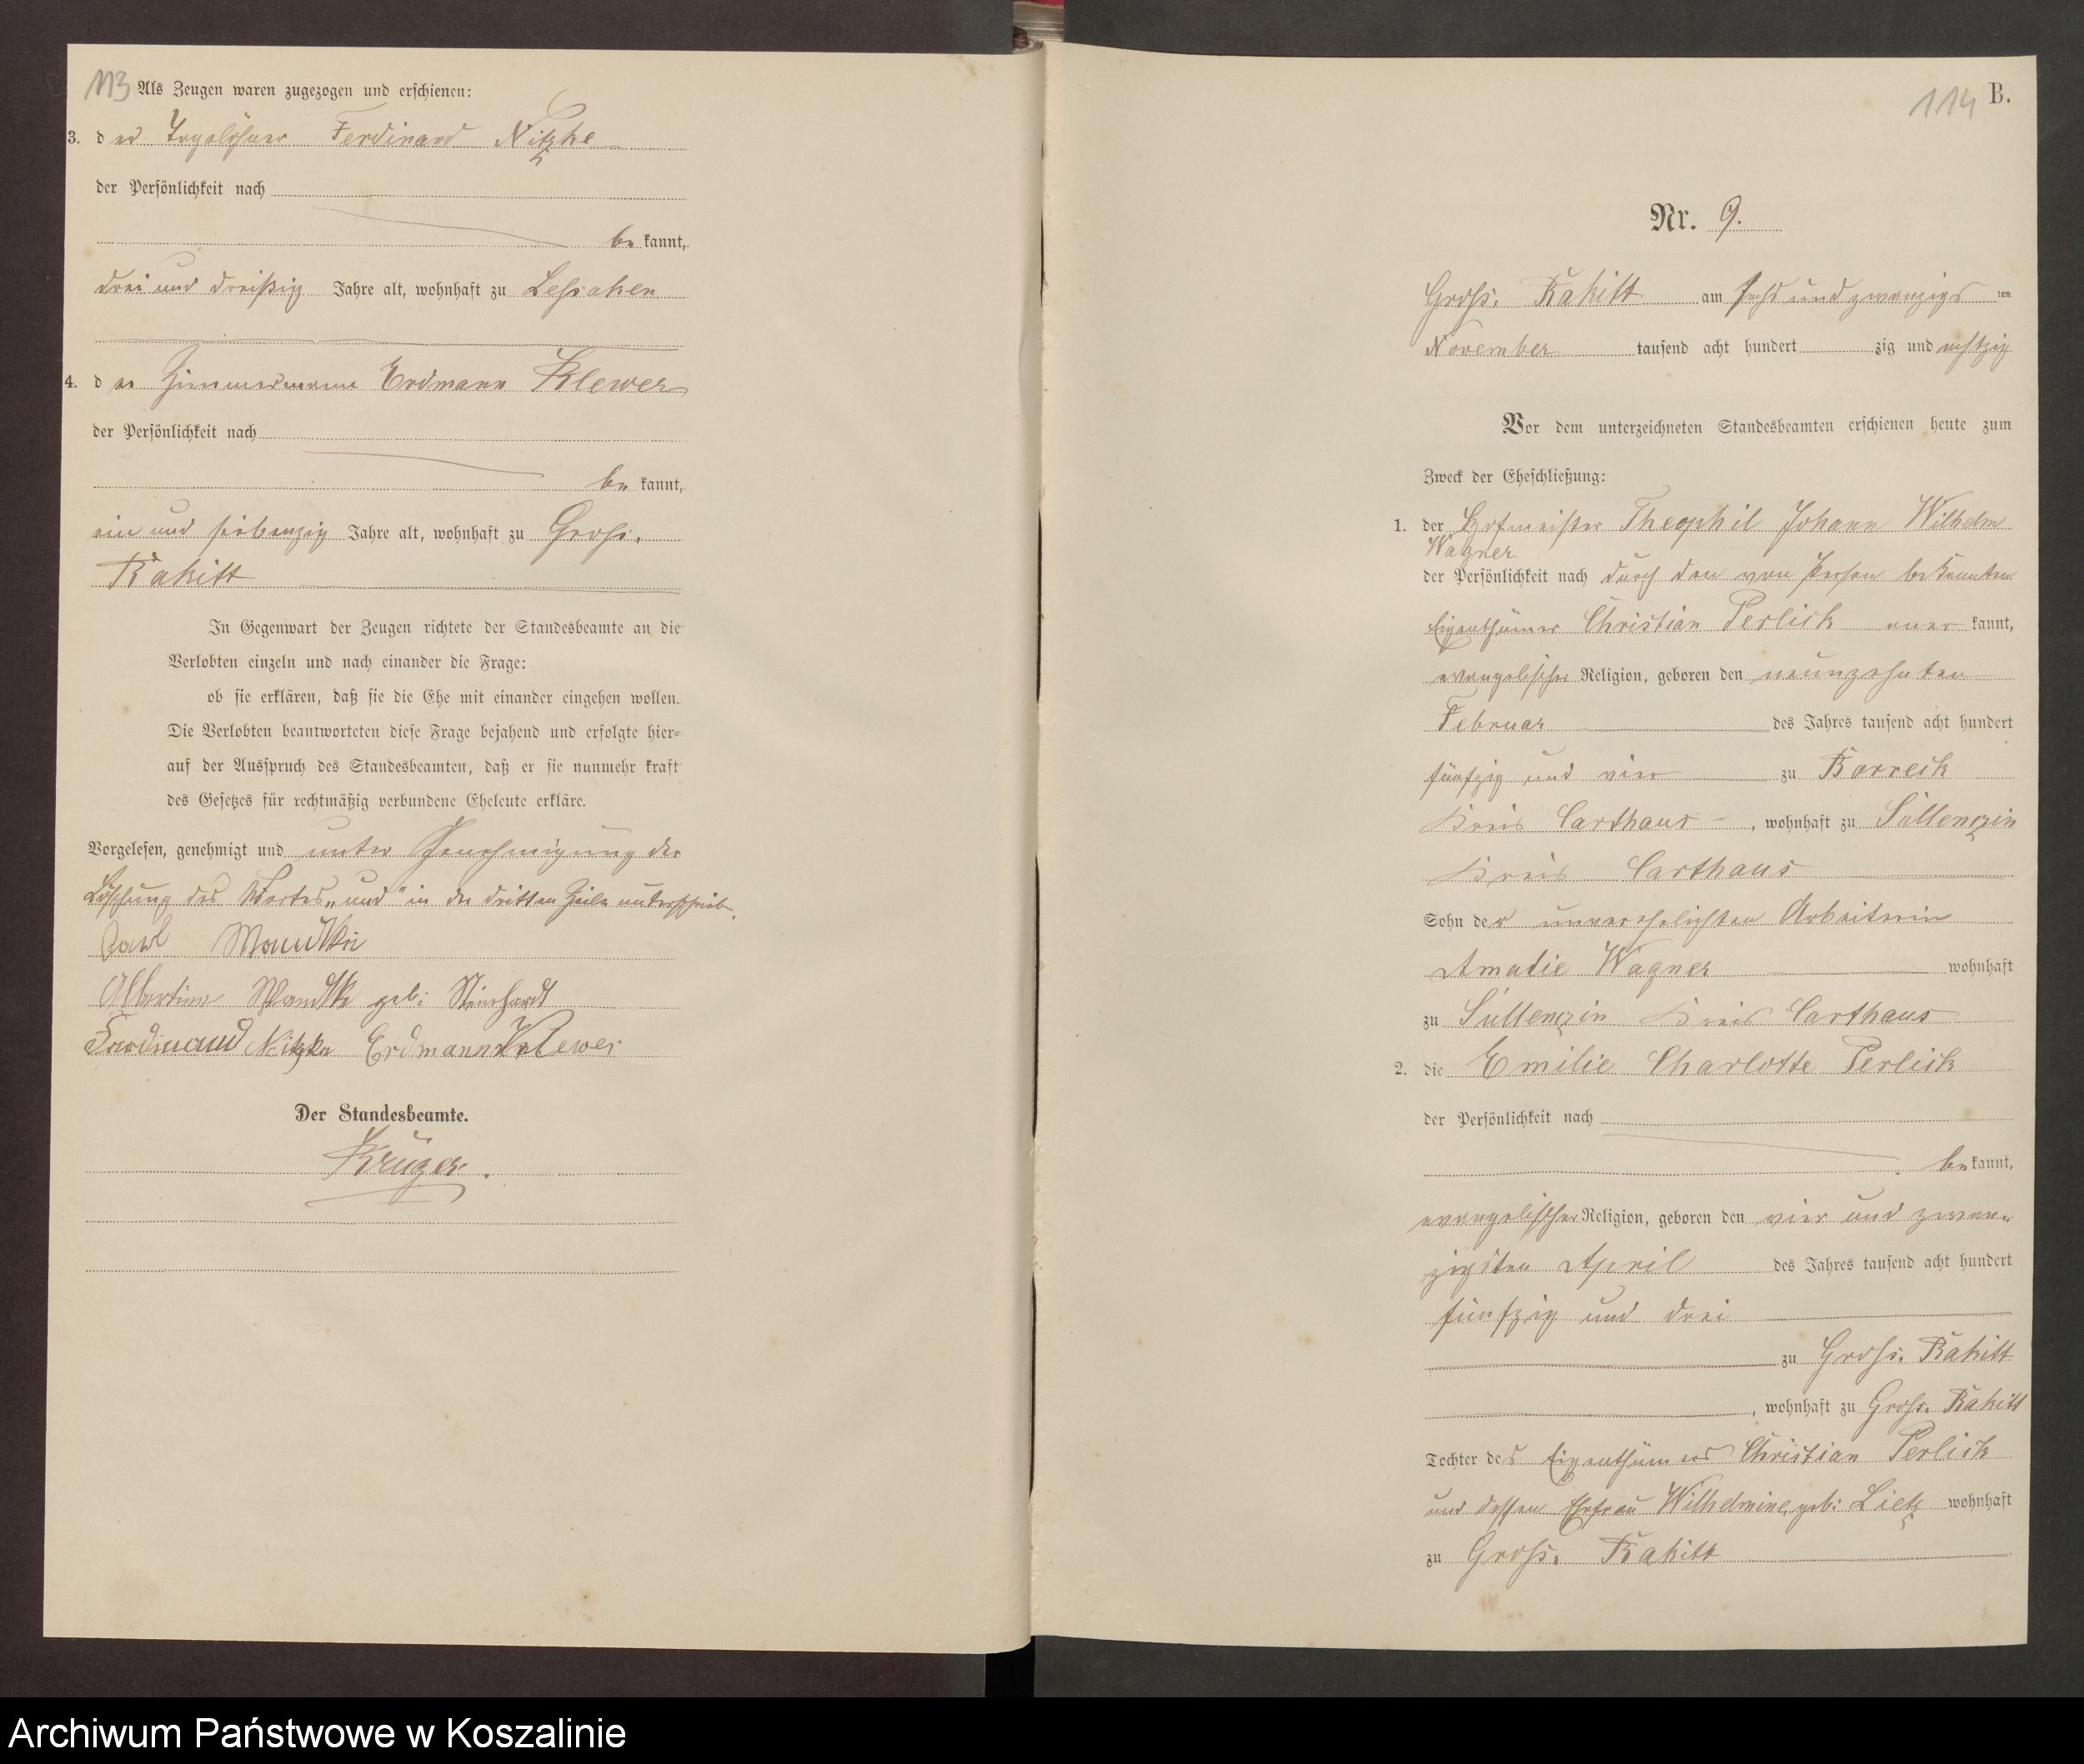 113 Als Zeugen waren zugezogen und erschienen:
3. der Tagelöhner Ferdinand Nitzke
der Persönlichkeit nach
bekannt,
drei und dreißig Jahre alt, wohnhaft zu Lessaken
4. der Zimmermann Erdmann Klewer
der Persönlichkeit nach
bekannt,
ein und siebenzig Jahre alt, wohnhaft zu Gross.
Rakitt
In Gegenwart der Zeugen richtete der Standesbeamte an die
Verlobten einzeln und nach einander die Frage:
ob sie erklären, daß sie die Ehe mit einander eingehen wollen.
Die Verlobten beantworteten diese Frage bejahend und erfolgte hier=
auf der Ausspruch des Standesbeamten, daß er sie nunmehr kraft
des Gesetzes für rechtmäßig verbundene Eheleute erkläre.
Vorgelesen, genehmigt und unter Genehmigung der
Löschung des Wortes „und" in der dritten Zeile unterschrieb.
Carl
Albertine geb: Steinhardt
Ferdinand Nitzke Erdmann Klewer
Der Standesbeamte.
Krüger.
114 B.
Nr. 9.
Gross. Rakitt am sechs und zwanzigsten
November tausend acht hundert zig und achtzig
Vor dem unterzeichneten Standesbeamten erschienen heute zum
Zweck der Eheschließung:
1. der Hofmeister Theophil Johann Wilhelm
Wagner
der Persönlichkeit nach durch den von Person bekannten
Eigenthümer Christian Perlick anerkannt,
evangelischer Religion, geboren den neunzehnten
Februar des Jahres tausend acht hundert
fünfzig und vier zu Borreck
Kreis Carthaus, wohnhaft zu Süllenczin
Kreis Carthaus
Sohn der unverehelichten Arbeiterin
Amalie Wagner wohnhaft
zu Süllenczin Kreis Carthaus
2. die Emilie Charlotte Perlick
der Persönlichkeit nach
bekannt,
evangelischer Religion, geboren den vier und zwan-
zigsten April des Jahres tausend acht hundert
fünfzig und drei
zu Gross. Rakitt
, wohnhaft zu Gross. Rakitt
Tochter des Eigenthümers Christian Perlick
und dessen Ehefrau Wilhelmine, geb: Lietz wohnhaft
zu Gross. Rakitt
Archiwum Państwowe w Koszalinie